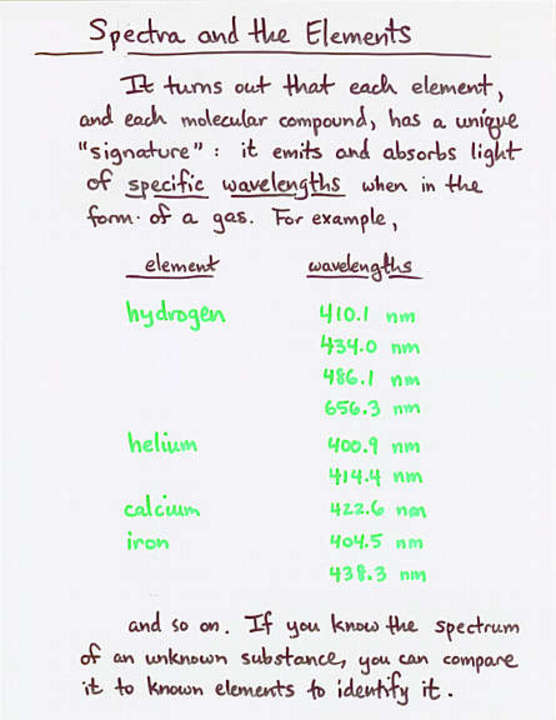 Spectra and the Elements
It turns out that each element,
and each molecular compound, has a unique
"signature" : it emits and absorbs light
of specific wavelengths when in the
form of a gas. For example,
element wavelengths
hydrogen 410.1 nm
434.0 nm
486.1 nm
656.3 nm
helium 400.9 nm
414.4 nm
calcium 422.6 nm
iron 404.5 nm
438.3 nm
and so on. If you know the spectrum
of an unknown substance, you can compare
it to known elements to identify it.